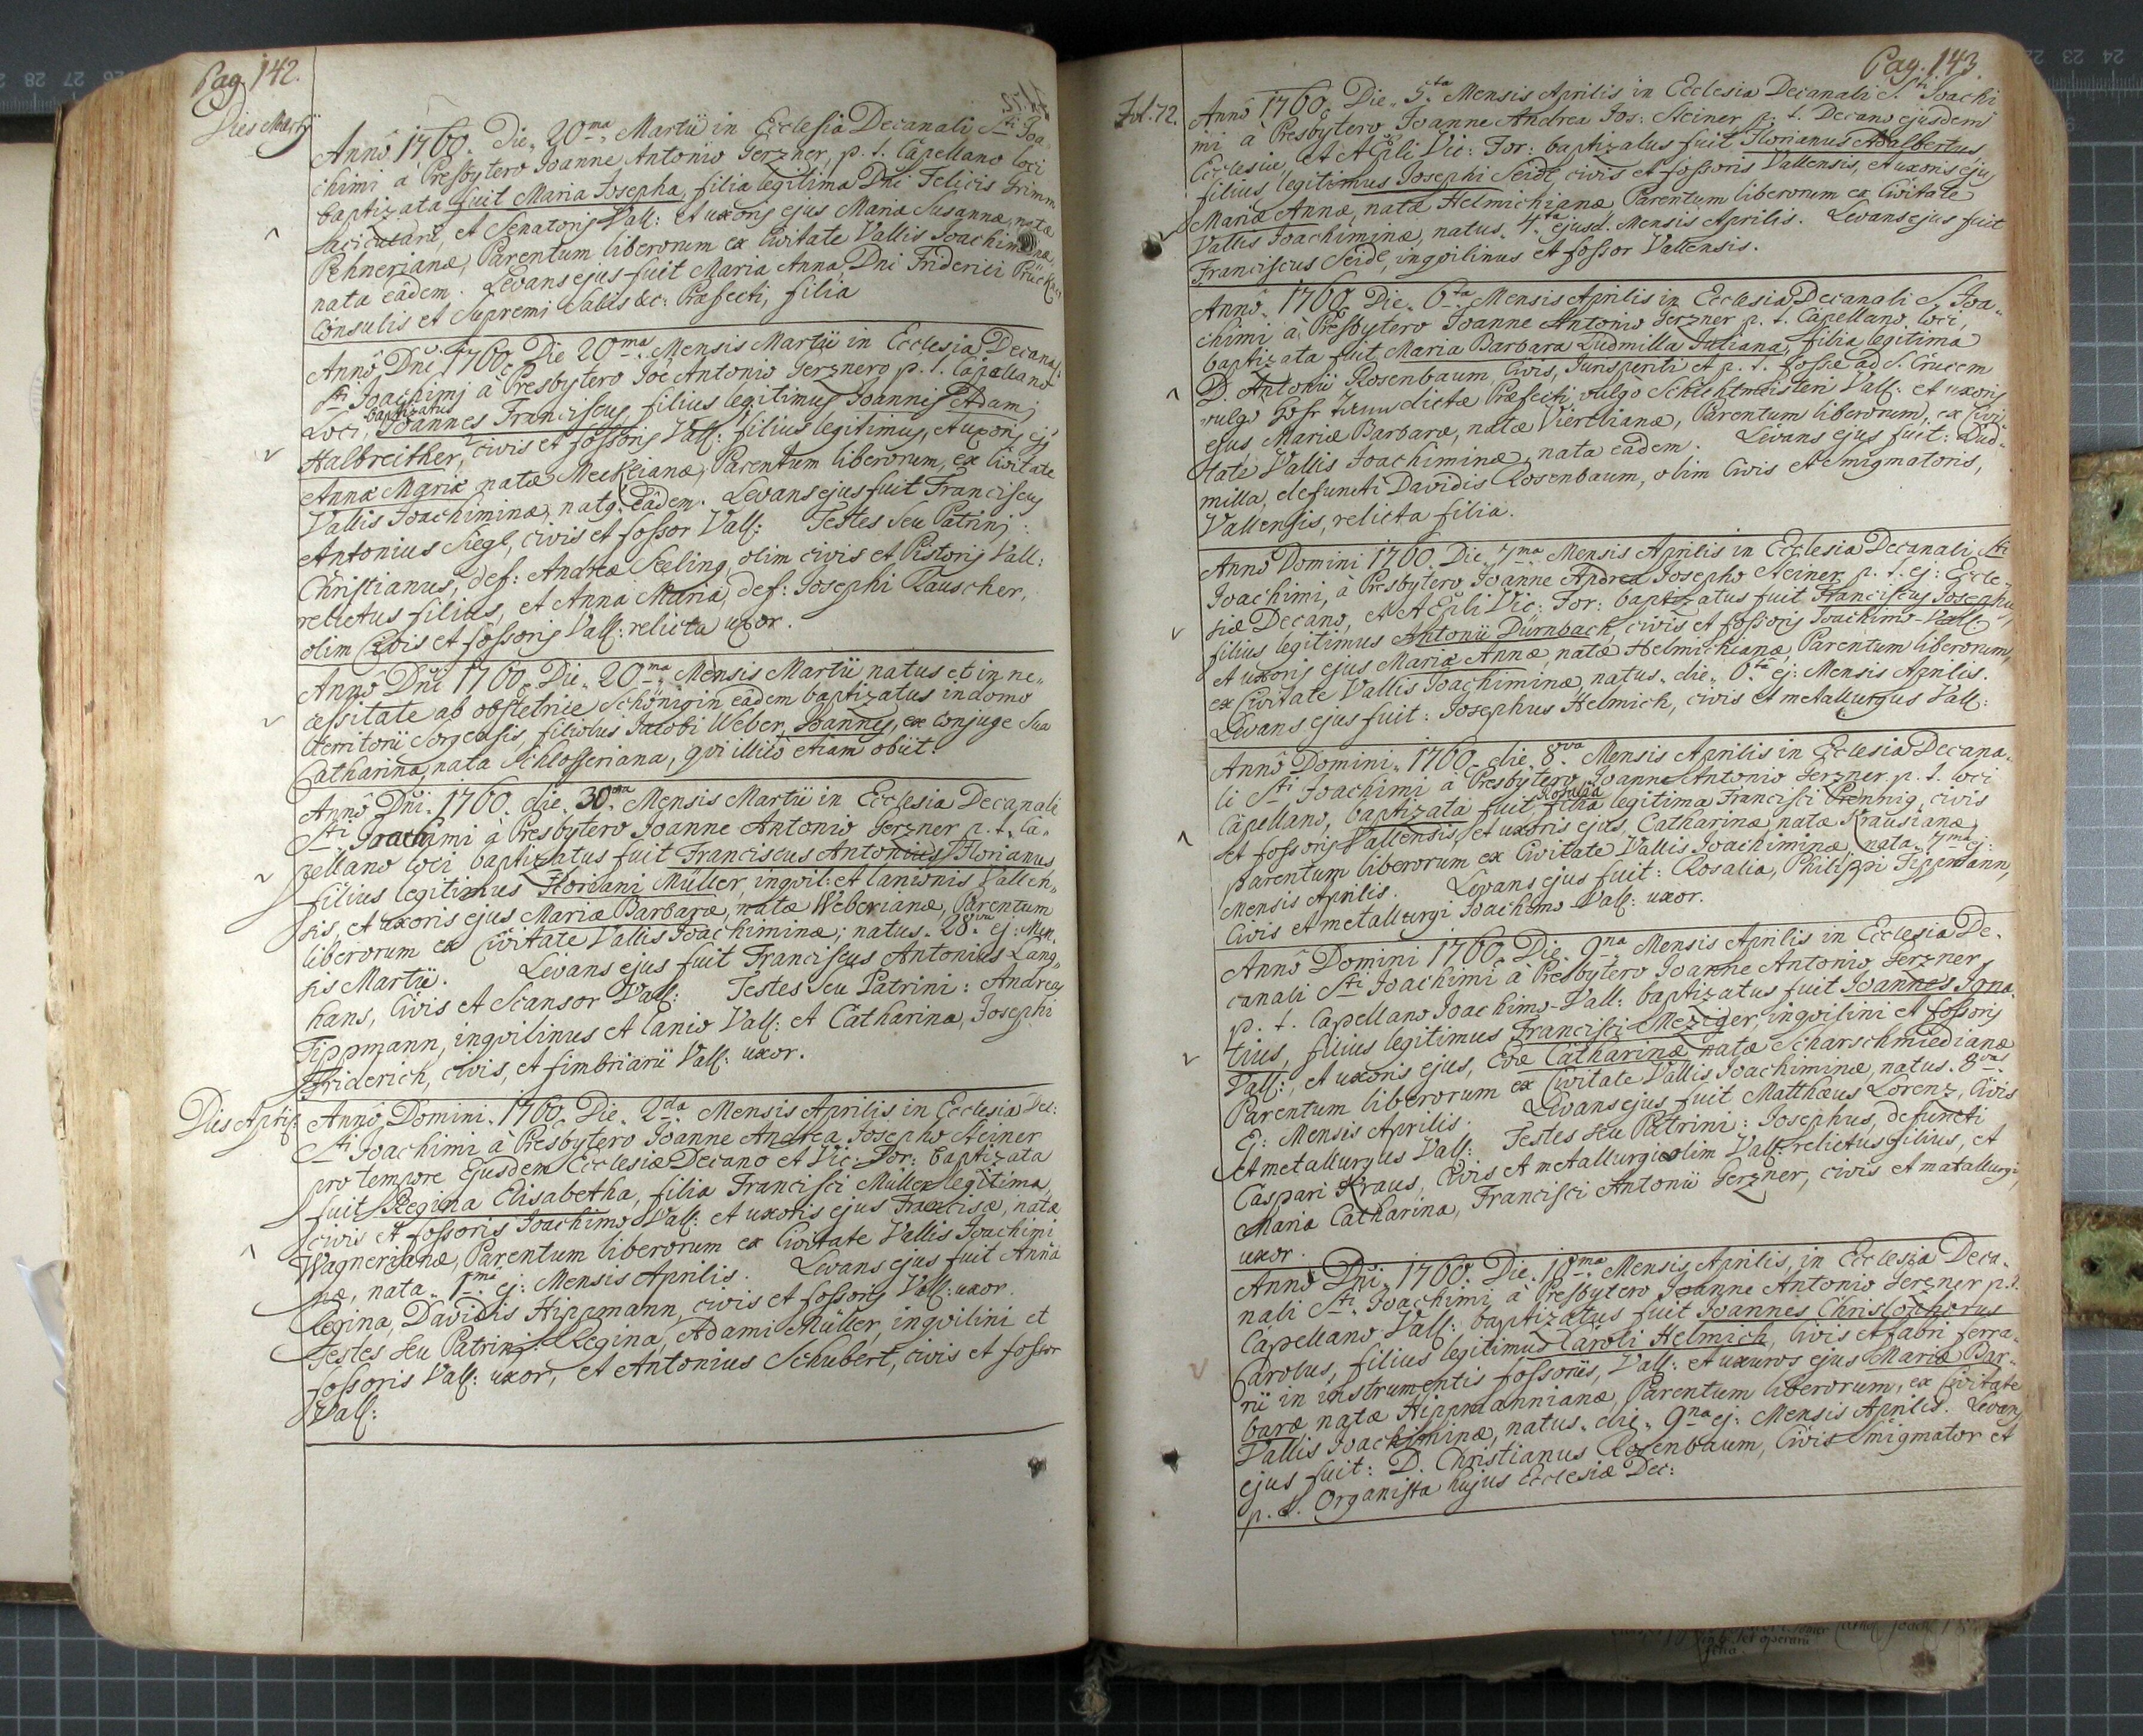 Pag. 142.
Dies Martij
Anno 1760. Die 20ma Martii in Ecclesia Decanali Sti Joa-
chimi a Presbytero Joanne Antonio Gerzner, p. t. Capellano loci
baptizata fuit Maria Josepha, filia legitima Dni Felicis Grimm
et Senatoris Vall: et uxoris ejus Mariæ Susannæ, natæ
Pehnerianæ, Parentum liberorum ex Civitate Vallis Joachiminæ,
nata eâdem. Levans ejus fuit Maria Anna, Dni Friderici
Consulis et Supremi Præfecti, filia
Anno Dni 1760. Die 20ma Mensis Martii in Ecclesia Decanali
Sti Joachimj à Presbytero Joe Antonio Gerznero p. t. Capellano
Loci, baptizatus Joannes Franciscus, filius legitimus Joannis Adamj
Halbreither, civis et fossoris Vall: filius legitimus, et uxoris ejus
Annæ Mariæ natæ Meckeianæ, Parentum liberorum, ex Civitate
Vallis Joachiminæ, natus eâdem. Levans ejus fuit Franciscus
Antonius Siegl, civis et fossor Vall: Testes seu Patrinj:
Christianus, def: Andreæ Seeling, olim civis et Pistoris Vall:
relictus filius, et Anna Maria, def: Josephi Rauscher,
olim Civis et fossoris Vall: relicta uxor.
Anno Dni 1760. Die 20ma Mensis Martii natus et in ne-
cessitate ab obstetrice Schönigin eâdem baptizatus in domo
territorii Sorgensis, filiolus Jacobi Weber, Joannes, ex conjuge sua
Catharina, nata Schlosseriana, qvi illico etiam obiit.
Anno Dni 1760. die 30ma Mensis Martii in Ecclesia Decanali
Sti Joachimi à Presbytero Joanne Antonio Gerzner p. t. Ca-
pellano loci baptizatus fuit Franciscus Antonius Florianus
filius legitimus Floriani Müller, inqvil: et lanionis Vallen-
sis, et uxoris ejus Mariæ Barbaræ, natæ Weberianæ, Parentum
liberorum ex Civitate Vallis Joachiminæ; natus 28va ej: Men-
sis Martii. Levans ejus fuit Franciscus Antonius Lang-
hans, Civis et Scansor Vall: Testes seu Patrini: Andreas
Tippmann, inqvilinus et lanio Vall: et Catharina, Josephi
Friderich, civis, et fimbriarii Vall: uxor.
Dies Aprilis
Anno Domini 1760. Die 2da Mensis Aprilis in Ecclesia Dec:
Sti Joachimi à Presbytero Joanne Andrea Josepho Steiner
pro tempore Ejusdem Ecclesiæ Decano et Vic: For: baptizata
fuit Regina Elisabetha, filia Francisci Müller legitima,
civis et fossoris Joachimo Vall: et uxoris ejus Franciscæ, natæ
Wagnerianæ, Parentum liberorum ex Civitate Vallis Joachimi
næ, nata 1ma ej: Mensis Aprilis. Levans ejus fuit Anna
Regina, Davidis Hippmann, civis et fossoris Vall: uxor.
Testes seu Patrinj: Regina, Adami Müller, inqvilini et
fossoris Vall: uxor, et Antonius Schubert, civis et fossor
Vall:
Pag. 143.
Fol. 72.
Anno 1760. Die 5ta Mensis Aprilis in Ecclesia Decanali S.ti Joachi
mi a Presbytero Joanne Andrea Jos: Steiner p. t. Decano ejusdem
Ecclesiæ, et AEpli Vic: For: baptizatus fuit Florianus Adalbertus
filius legitimus Josephi Seidl civis et fossoris Vallensis, et uxoris ejus
Mariæ Annæ, natæ Helmichianæ Parentum liberorum ex Civitate
Vallis Joachiminæ, natus 4ta ejusd. Mensis Aprilis. Levans ejus fuit
Franciscus Seidl, inqvilinus et fossor Vallensis.
Anno 1760. Die 6ta Mensis Aprilis in Ecclesia Decanali S. Joa-
chimi à Presbytero Joanne Antonio Gerzner p. t. Capellano loci,
baptizata fuit Maria Barbara Ludmilla Juliana, filia legitima
D. Antonii Rosenbaum, Civis, Jurisperiti et p. t. fossæ ad S. Crucem
vulgo dictæ Præfecti, vulgò Schichtmeisteri Vall: et uxoris
ejus Mariæ Barbaræ, natæ Vierthianæ, Parentum liberorum, ex Civi-
tate Vallis Joachiminæ, nata eâdem. Levans ejus fuit: Lud-
milla, defuncti Davidis Rosenbaum, olim Civis et Smigmatoris,
Vallensis, relicta filia.
Anno Domini 1760. Die 7ma Mensis Aprilis in Ecclesia Decanali Sti
Joachimi, à Presbytero Joanne Andrea Josepho Steiner p. t. ej: Eccle-
siæ Decano, et AEpli Vic: For: baptizatus fuit Franciscus Josephus,
filius legitimus Antonii Dürnbach, civis et fossoris Joachimo-Vall:
et uxoris ejus Mariæ Annæ, natæ Helmichianæ, Parentum liberorum,
ex Civitate Vallis Joachiminæ, natus die 6ta ej: Mensis Aprilis.
Levans ejus fuit: Josephus Helmich, civis et metallurgus Vall:
Anno Domini 1760. die 8va Mensis Aprilis in Ecclesia Decana-
li Sti Joachimi à Presbytero Joanne Antonio Gerzner p. t. loci
Capellano, baptizata fuit Rosalia filia legitima Francisci Prennig, civis
et fossoris Vallensis, et uxoris ejus, Catharinæ, natæ Krausianæ,
parentum liberorum ex Civitate Vallis Joachiminæ, nata 7ma ej:
Mensis Aprilis. Levans ejus fuit: Rosalia, Philippi Tippmann,
Civis et metallurgi Joachimo-Vall: uxor.
Anno Domini 1760. Die 9na Mensis Aprilis in Ecclesia De-
canali Sti Joachimi à Presbytero Joanne Antonio Gerzner,
p. t. Capellano Joachimo-Vall: baptizatus fuit Joannes Igna-
tius, filius legitimus Francisci Meziger, inqvilini et fossoris
Vall:, et uxoris ejus, Evæ Catharinæ natæ Scharschmiedianæ
Parentum liberorum ex Civitate Vallis Joachiminæ, natus 8va
E: Mensis Aprilis. Levans ejus fuit Matthæus Lorenz, Civis
et metallurgus Vall: Testes seu Patrini: Josephus, defuncti
Caspari Kraus, Civis et metallurgi olim Vall: relictus filius, et
Maria Catharina, Francisci Antonii Gerzner, civis et matallurgi,
uxor.
Anno Dni 1760. Die 10ma Mensis Aprilis, in Ecclesia Deca-
nali Sti Joachimi à Presbytero Joanne Antonio Gerzner p. t.
Capellano Vall: baptizatus fuit Joannes Christophorus
Carolus, filius legitimus Caroli Helmich, Civis et fabri ferra-
rii in instrumentis fossoriis, Vall: et uxoros ejus Mariæ Bar-
baræ natæ Hippmannianæ, Parentum liberorum, ex Civitate
Vallis Joachiminæ, natus die 9na ej: Mensis Aprilis. Levans
ejus fuit: D. Christianus Rosenbaum, Civis Smigmator et
p. t. Organista hujus Ecclesiæ Dec: